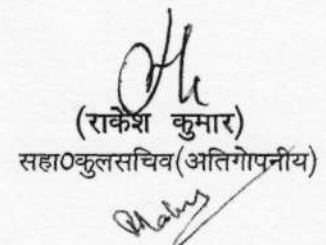 (राकेश कुमार)
सहा0कुलसचिव(अतिगोपनीय)